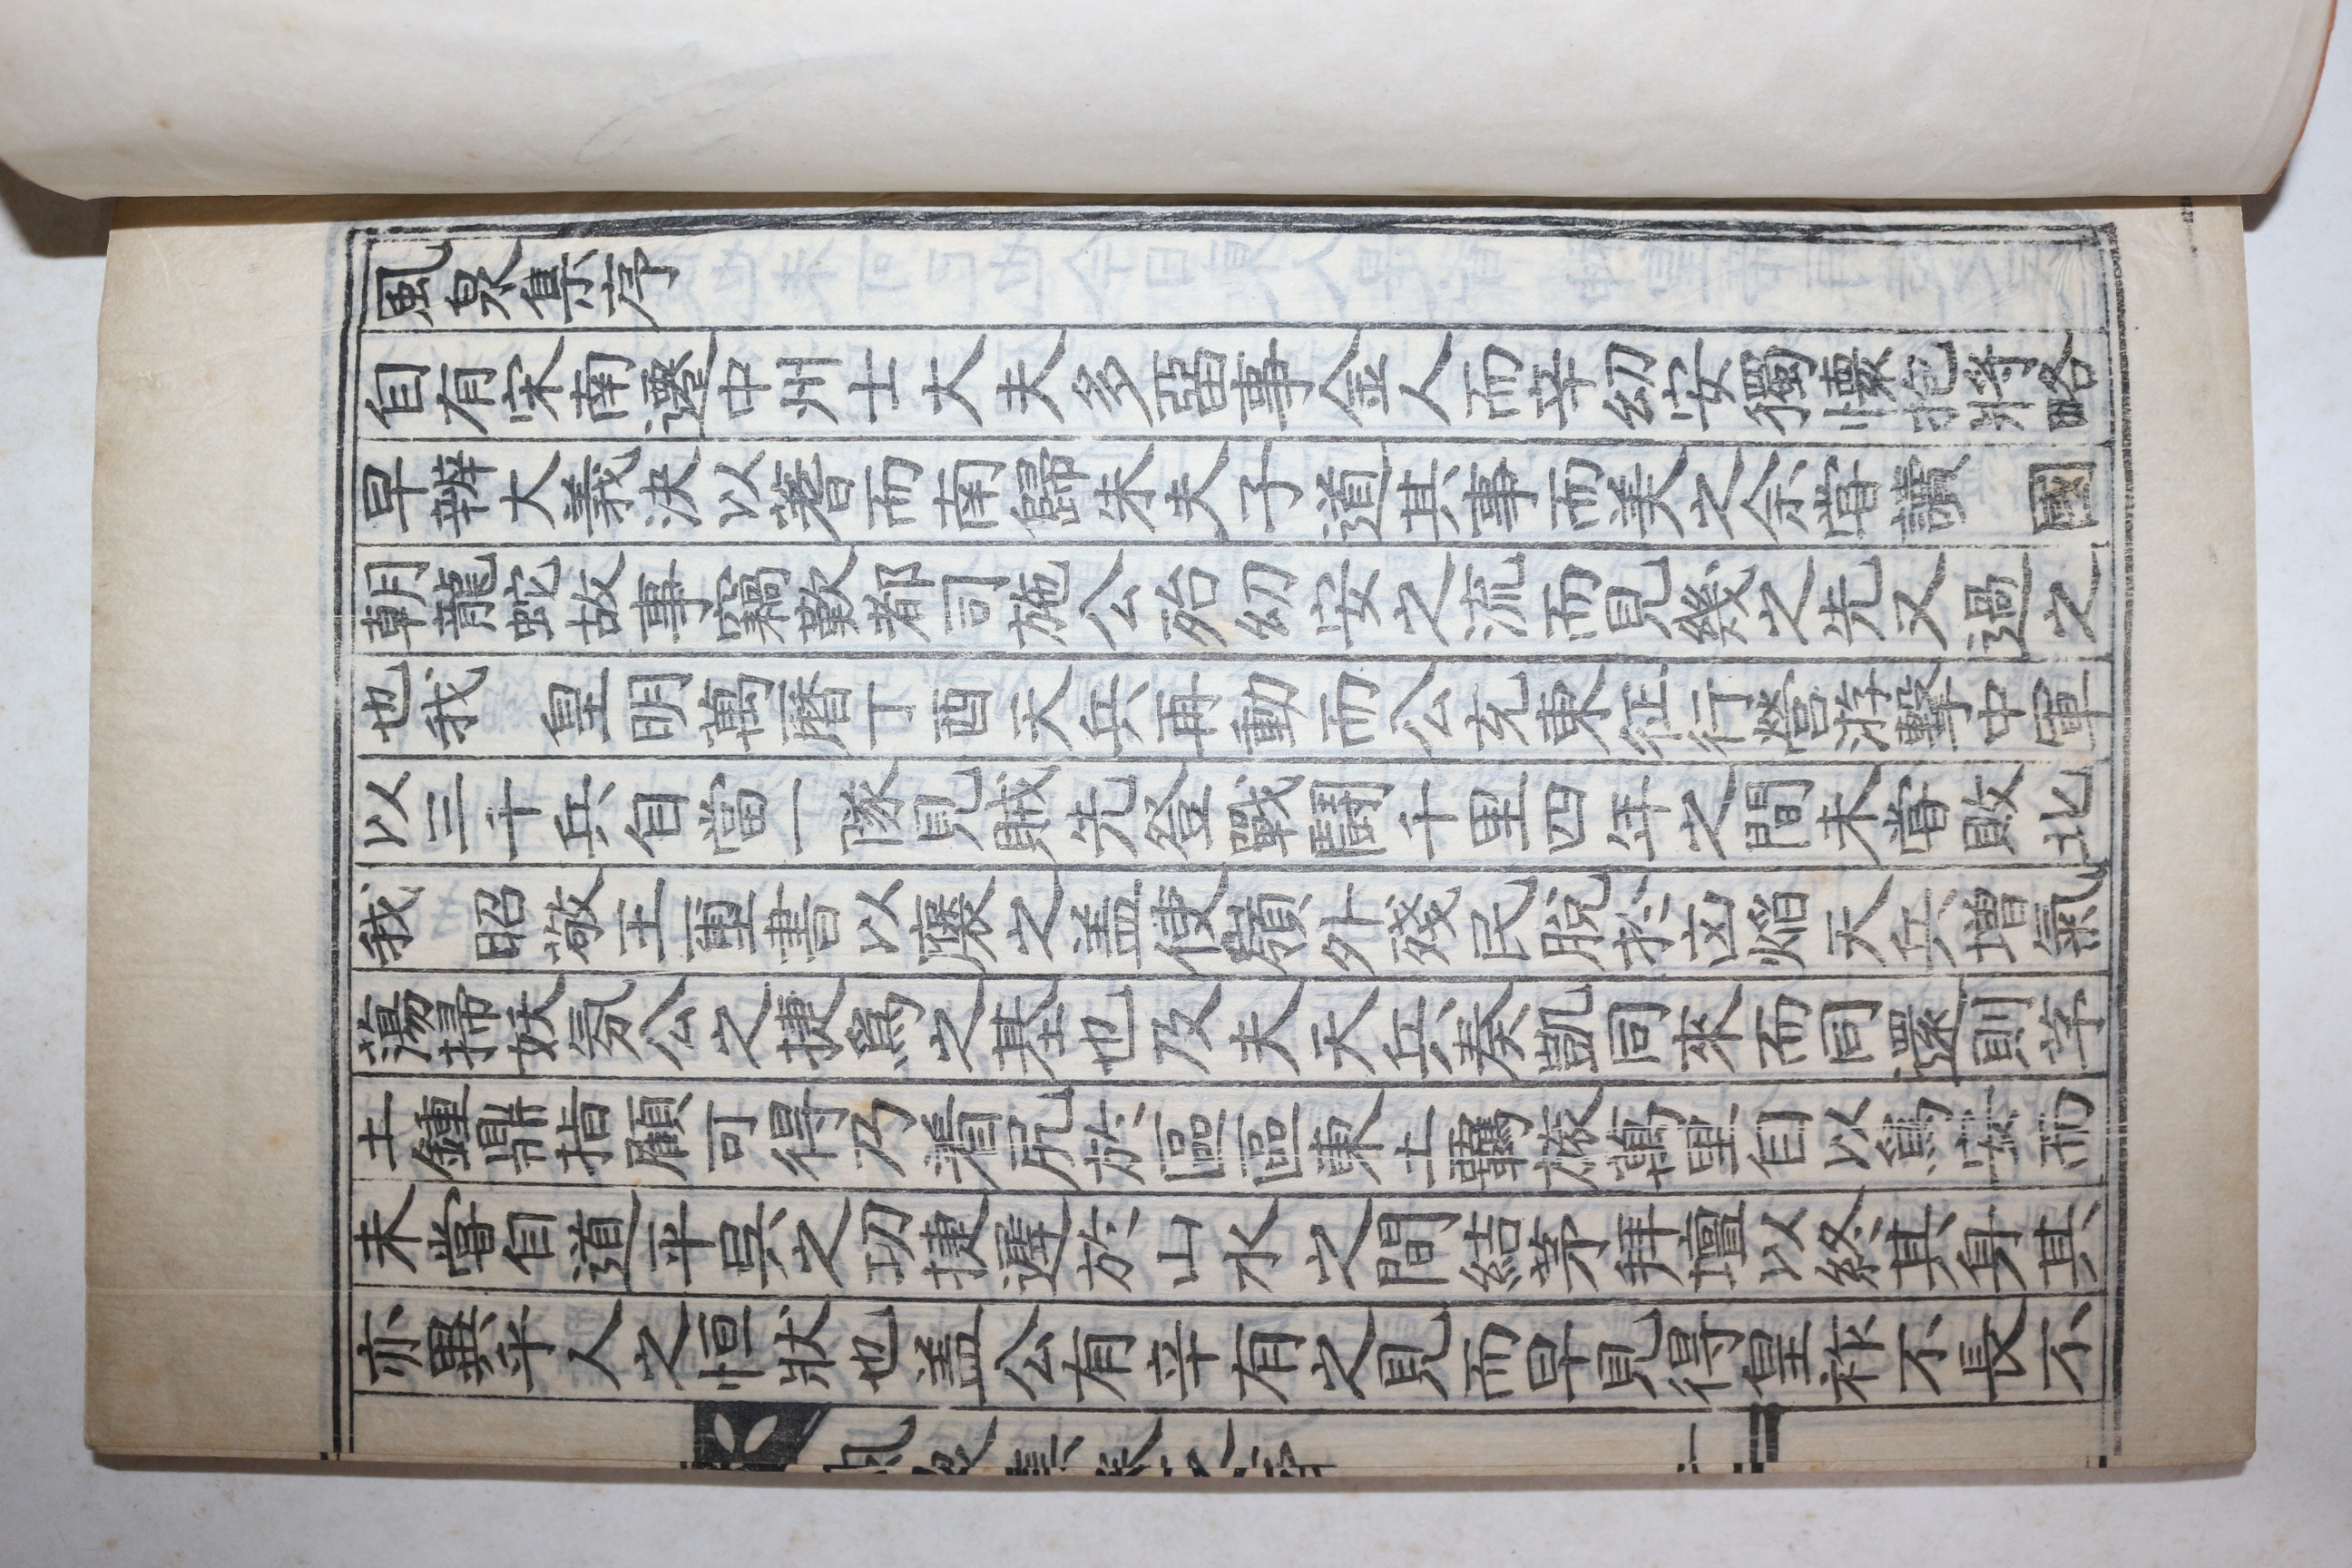 風泉集序
自有宋南遷中州士大夫多臣事金人而辛幼安獨懷抱將略
早辦大義決以簪而南歸朱夫子道其事而美之余嘗讀 國
朝龍蛇故事竊歎都司施公殆幼安之流而見幾之先又過之
也我 皇明萬曆丁酉天兵再動而公充東征行營游擊中軍
以三千兵自當一隊見賊先登戰鬪千里四年之間未嘗敗北
我 昭敬王璽書以褒之盖使嶺外殘民脫於凶焰天兵增氣
蕩掃妖氛公之捷爲之基也及夫天兵奏凱同來而同還則茅
土鍾鼎指顧可得乃着尻於區區東土羈旅萬里自以爲安而
未嘗自道平吳之功捷遲於山水之間結茅拜壇以終其身其
亦異乎人之恒狀也盖公有辛有之見而早見得皇祚不長不